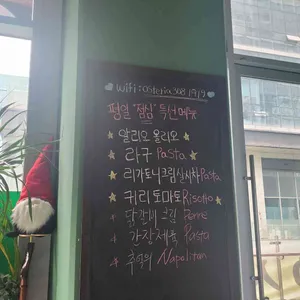 wifi : osteria308 1919
평일 "점심" 특선메뉴
알리오 올리오
라구 Pasta
리가토니크림심사차Pasta
커리 토마토 Risotto
닭갈비 크림 Penne
가장제육 Pasta
추억의 Napolitan